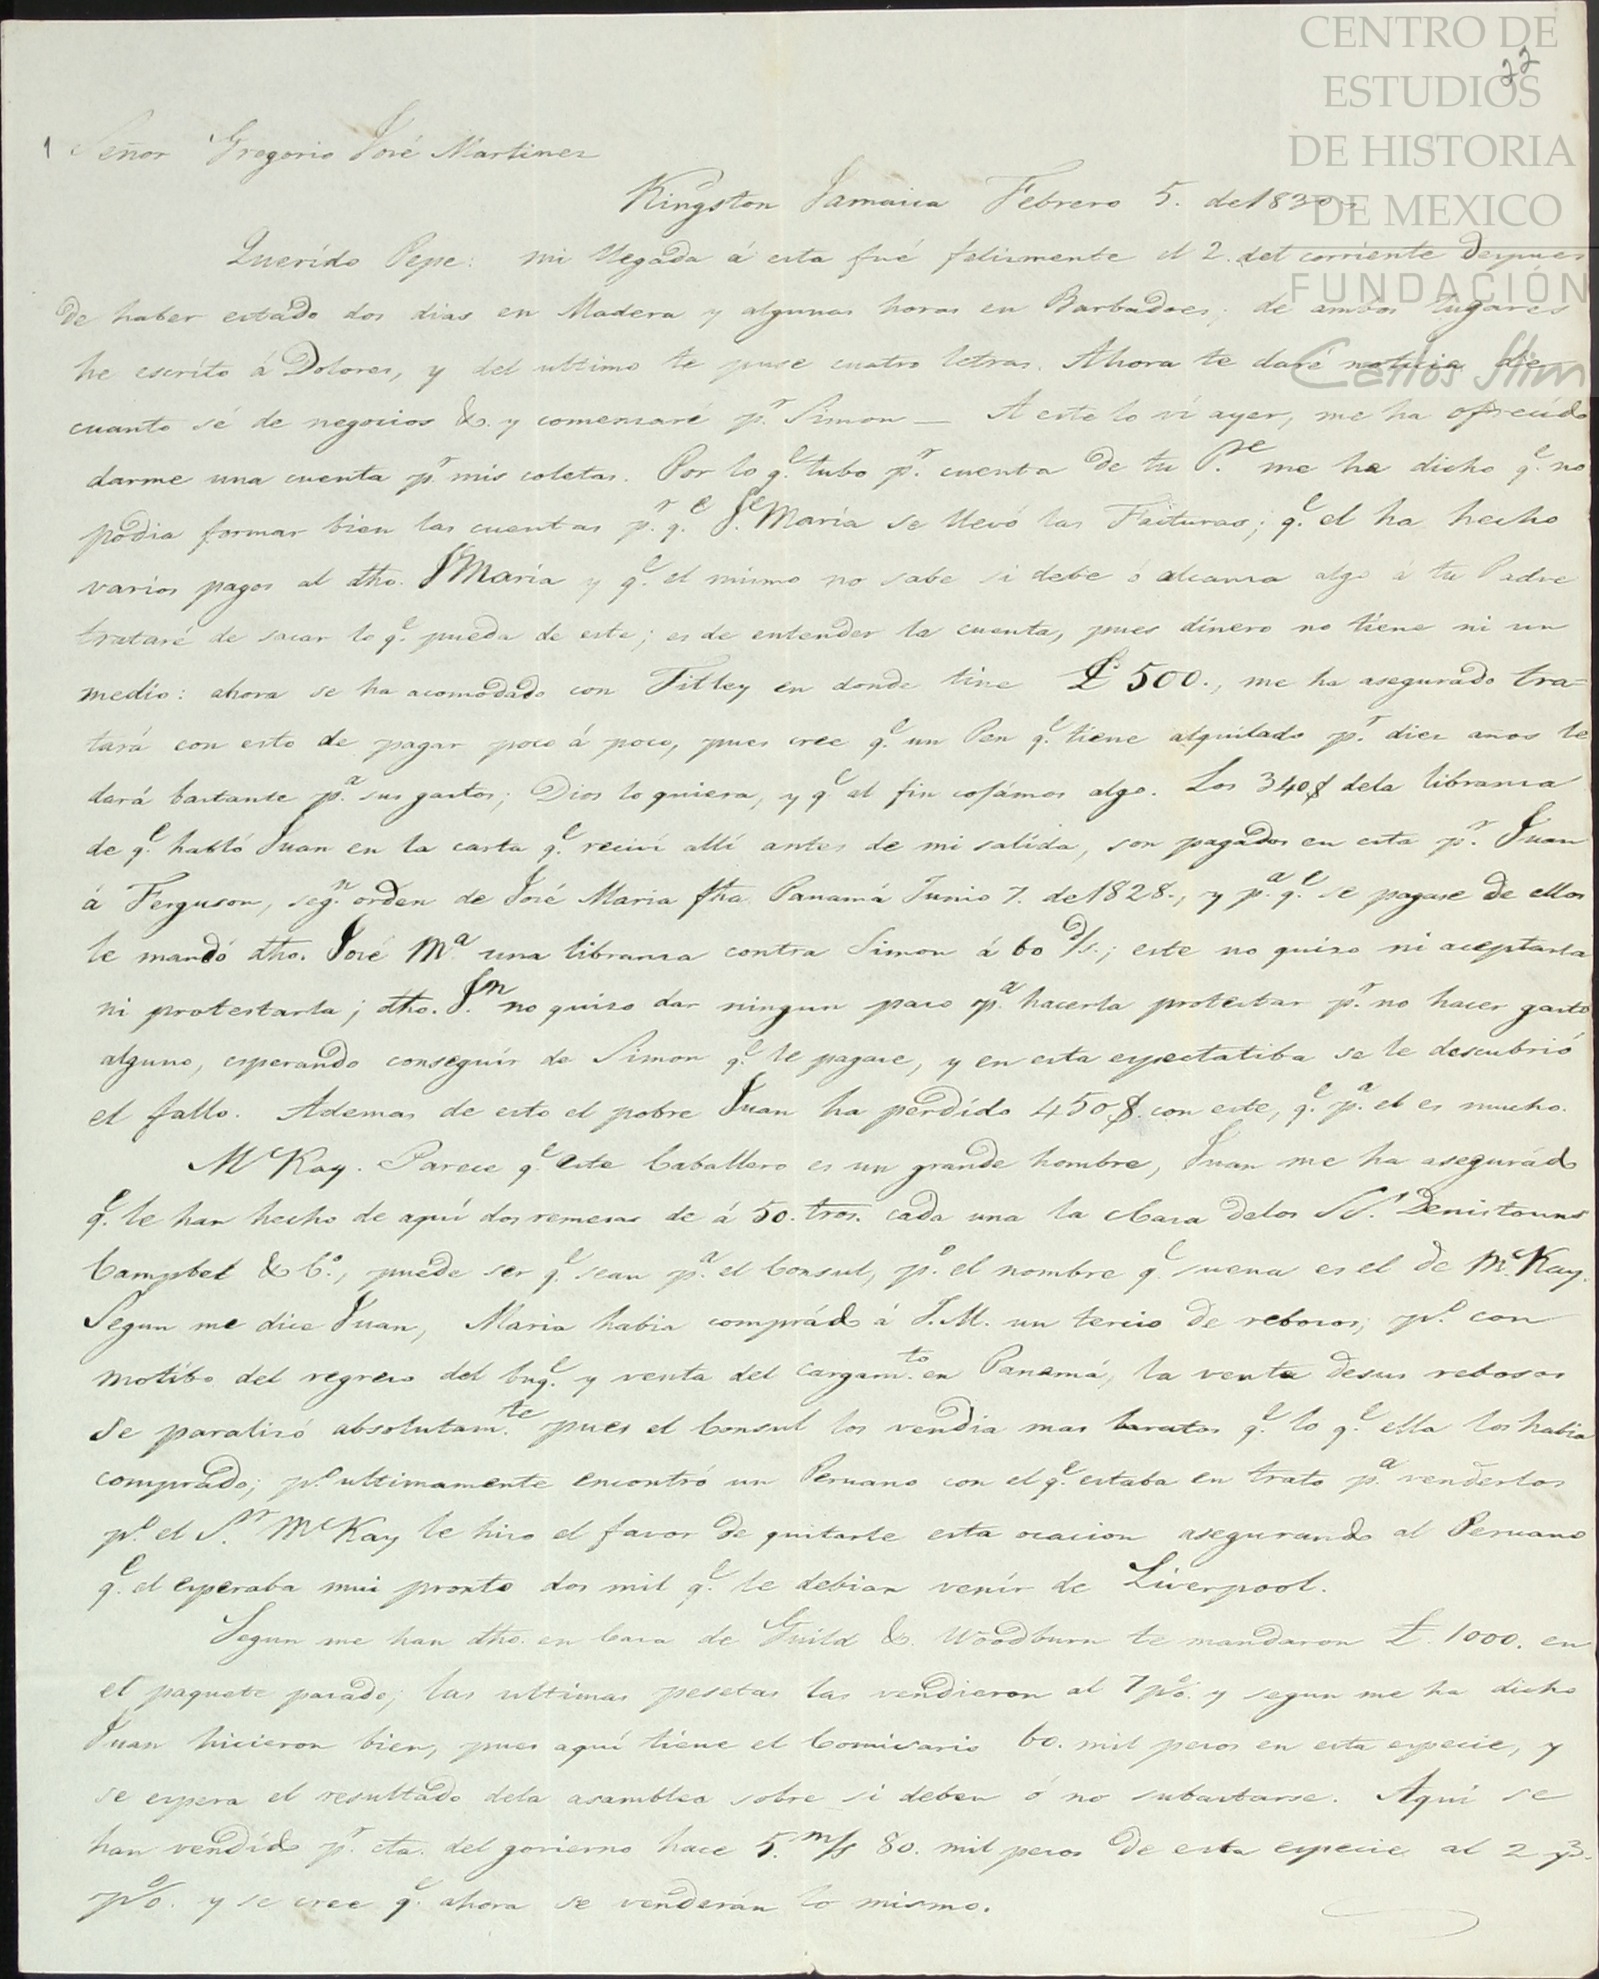 CENTRO DE
ESTUDIOS
DE HISTORIA
DE MEXICO
FUNDACIÓN
Carlos Slim
22
1 Señor Gregorio José Martinez
Kingston Jamaica Febrero 5. de 1830
Querído Pepe: mi llegada á esta fué felizmente el 2. del corriente despues
de haber estado dos dias en Madera y algunas horas en Barbadoes; de ambos lugares
he escríto á Dolores, y del ultimo te puse cuatro letras. Ahora te daré noticia de
cuanto sé de negocios &. y comenzaré p.r Simon — A este lo ví ayer, me ha ofrecído
darme una cuenta p.r mis coletas. Por lo q.e tubo p.r cuenta de tu P.e me ha dicho q.e no
podia formar bien las cuentas p.r q.e J.e María se llevó las Facturas; q.e el ha hecho
varios pagos al dho. JMaría y q.e el mismo no sabe si debe ó alcanza algo á tu Padre
trataré de sacar lo q.e pueda de este; es de entender la cuenta, pues dinero no tiene ni un
medio: ahora se ha acomodado con Titley en donde tine £ 500., me ha asegurado tra=
tará con esto de pagar poco á poco, pues cree q.e un Pen q.e tiene alquilado p.r diez años le
dará bastante p.a sus gastos; Dios lo quiera, y q.e al fin cojámos algo. Los 340$ dela libranza
de q.e habló Juan en la carta q.e reciví allí antes de mi salída, son pagados en esta p.r Juan
á Ferguson, seg.n orden de José Maria fha. Panamá Junio 7. de 1828., y p.a q.e se pagase de ellos
le mandó dho. José M.a una libranza contra Simon á 60 d/s.; este no quiso ni aceptarla
ni protestarla; dho. J.n no quiso dar ningun paso p.a hacerla protestar p.r no hacer gasto
alguno, esperando conseguír de Simon q.e le pagase, y en esta espectatiba se le descubrió
el fallo. Ademas de esto el pobre Juan ha perdído 450.$. con este, q.e p.a el es mucho.
Mc Kay. Parece q.e este Caballero es un grande hombre, Juan me ha asegurádo
q.e le han hecho de aquí dos remesas de á 50. tros. cada una la Casa delos SS. Denistouns
Campbel & C.o, puede ser q.e sean p.a el Consul, p.o el nombre q.e suena es el de Mc. Kay.
Segun me dice Juan, Maria habia comprádo á J.M. un tercio de rebozos; p.o con
motibo del regreso del buq.e y venta del cargam.to en Panamá, la venta desus rebosos
se paralizó absolutam.te pues el Consul los vendia mas baratos q.e lo q.e ella los habia
comprado; p.o ultimamente encontró un Peruano con el q.e estaba en trato p.a venderlos
p.o el S.or McKay le hizo el favor de quitarle esta ocacion asegurando al Peruano
q.e el esperaba mui pronto dos mil q.e le debian venír de Liverpool.
Segun me han dho. en Casa de Guild &. Woodburn te mandaron £. 1000. en
el paquete pasado; las ultimas pesetas las vendieron al 7 p%. y segun me ha dicho
Juan hicieron bien, pues aquí tiene el Comisario 60. mil pesos en esta especie, y
se espera el resultado dela asamblea sobre si deben ó no subastarse. Aquí se
han vendído p.r cta. del govierno hace 5. m/s 80. mil pesos de esta especie al 2 y 3.
p%. y se cree q.e ahora se venderán lo mismo.